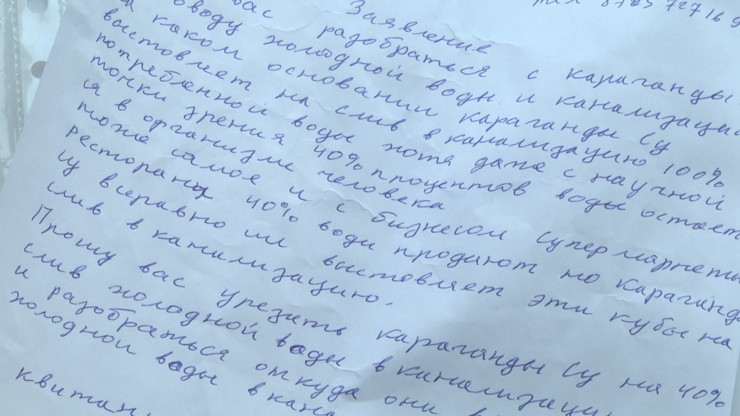 Заявление
вас разобраться с караганды
поводу холодной воды и канализации
каком основании караганды Су
выстовляет на слив в канализацию 100%
потребленной воды хотя даже с научной
точки зрения 40% процентов воды остает
ся в организме человека
тоже самое и с бизнесом супермаркеты
ресторанах 40% воды продают но караганда
Су всеравно им выстовляет эти кубы на
слив в канилизацию.
Прошу вас урезать караганды Су на 40%
слив холодной воды в канализацию
и разобраться откуда они
холодной воды в кана